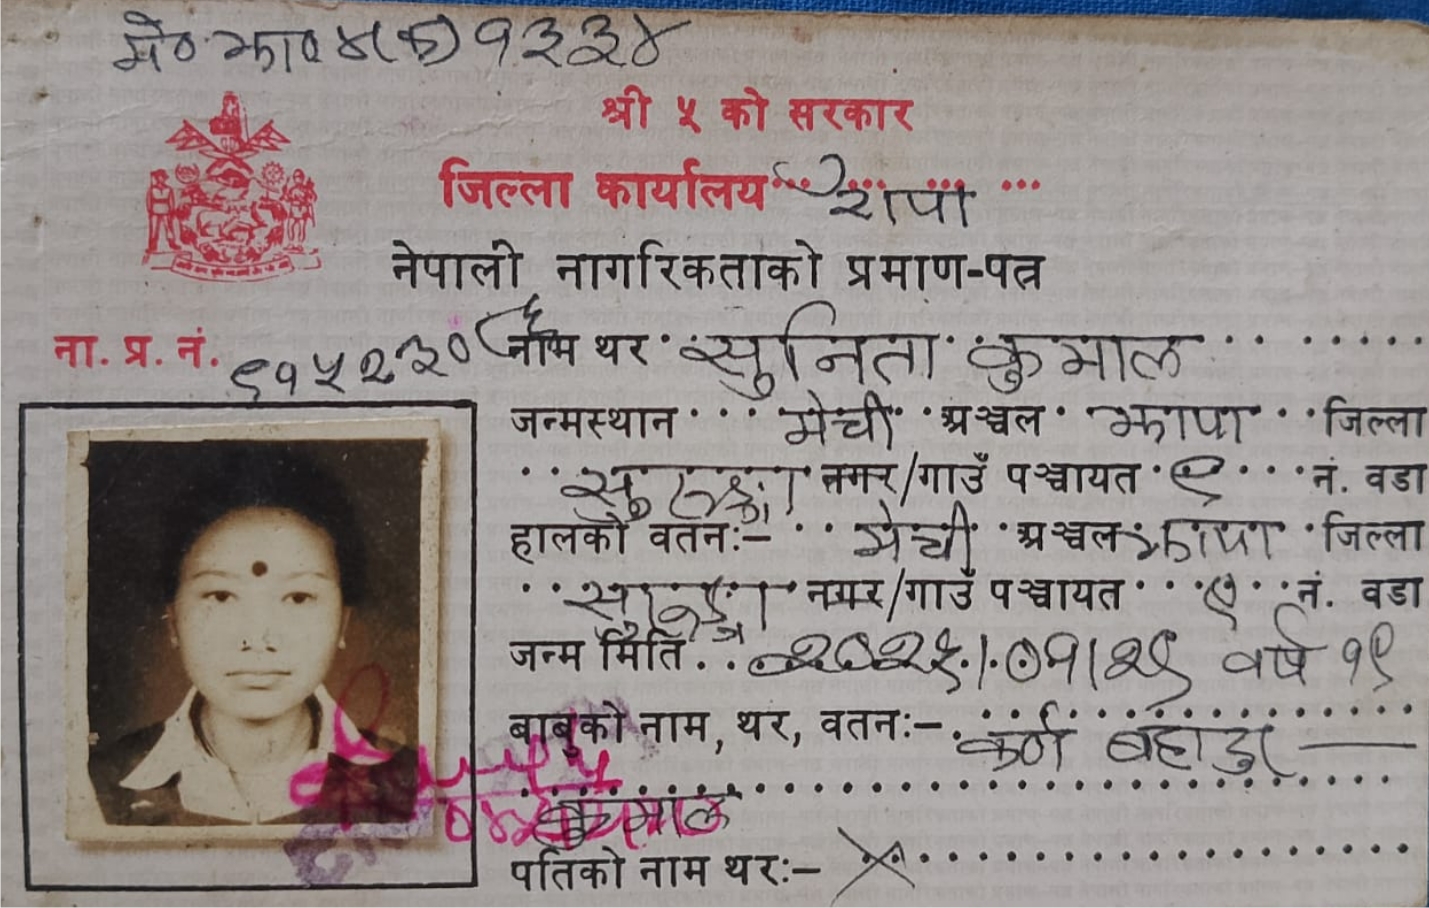 मे० झा० ४(क) १३३४
श्री ५ को सरकार
जिल्ला कार्यालय झापा
नेपाली नागरिकताको प्रमाण-पत्र
ना. प्र. नं. ६१५२३० नाम थर सुनिता कुमाल
जन्मस्थान मेची अञ्चल झापा जिल्ला
नगर/गाउँ पञ्चायत ९ नं. वडा
हालको वतनः- मेची अञ्चल झापा जिल्ला
नगर/गाउँ पञ्चायत ९ नं. वडा
जन्म मिति वर्ष १९
बाबुको नाम, थर, वतनः- कर्ण बहादुर
कुमाल
पतिको नाम थरः- X